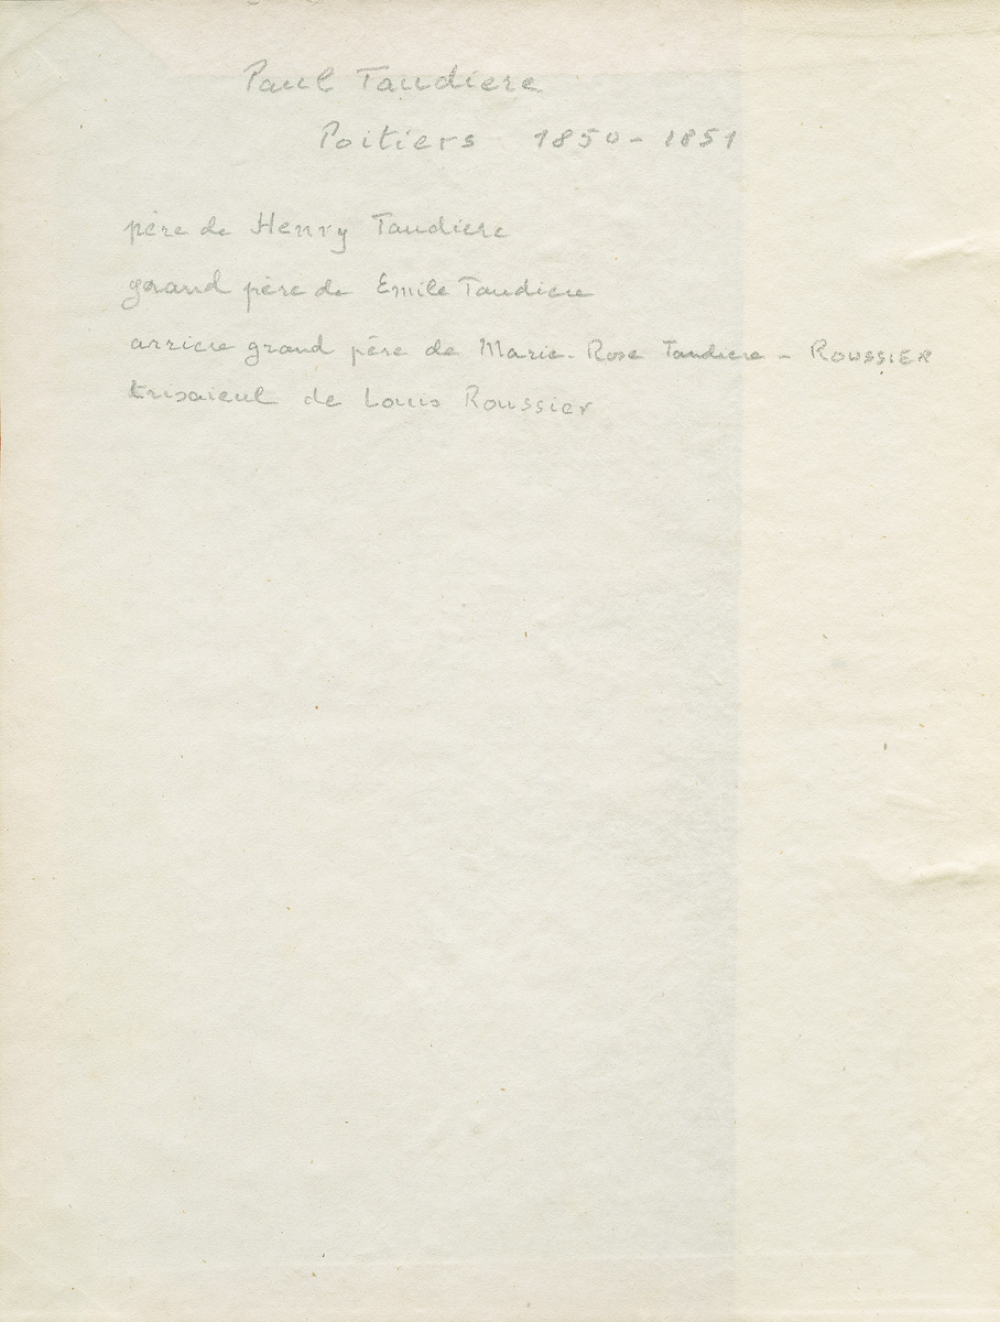 Paul Taudiere
Poitiers 1850-1851
père de Henry Taudiere
grand père de Emile Taudiere
arriere grand père de Marie-Rose Taudiere - ROUSSIER
trisaieul de Louis Roussier